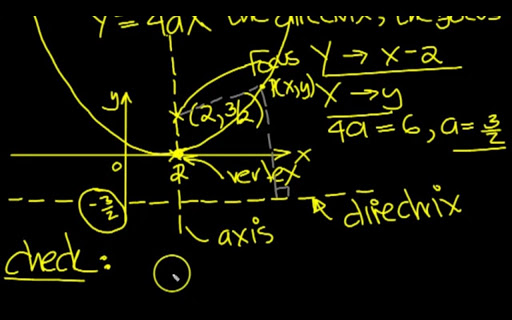 Y² = 4aX the directrix, the focus
Focus Y → x-2
y P(x,y) X → y
(2, 3/2) 4a = 6, a = 3/2
0 2 vertex x
-3/2 directrix
axis
check: